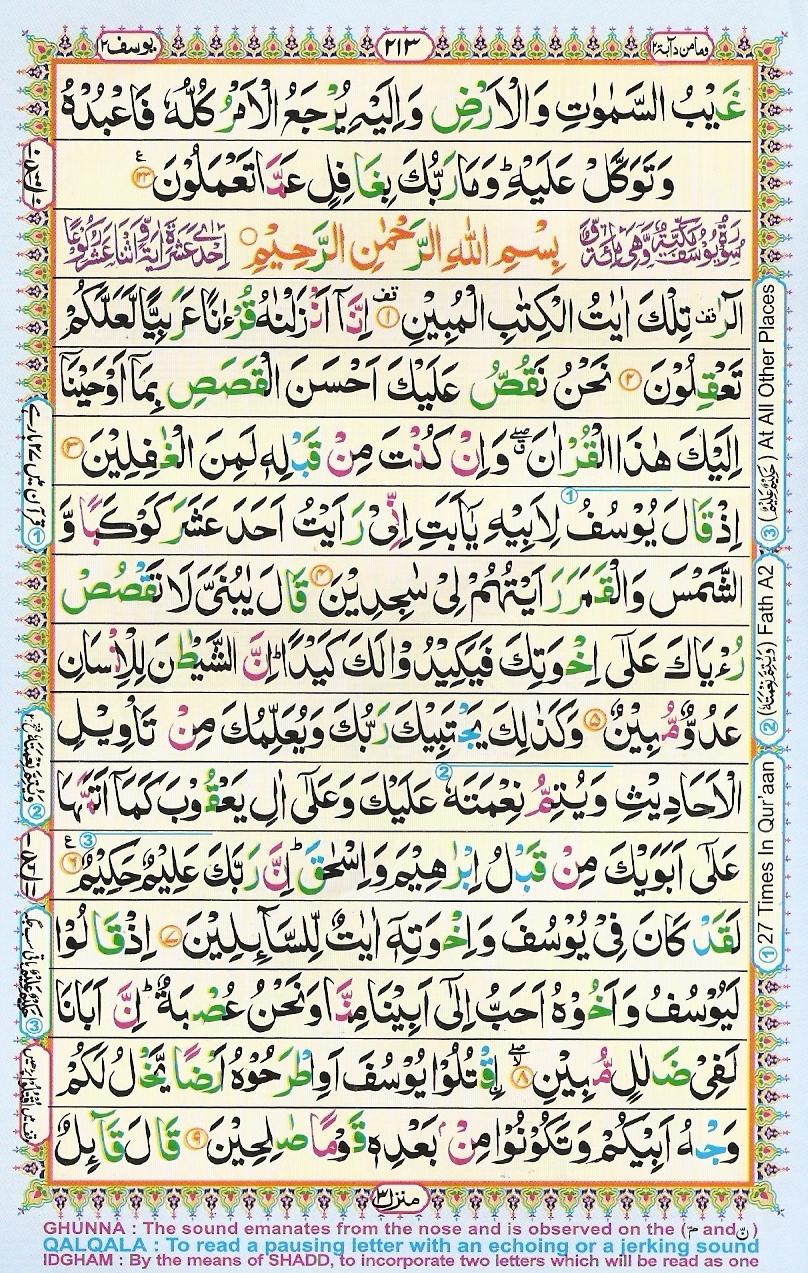 وما من دآبة ١٢
٢١٣
يوسف ١٢
غَيْبُ السَّمٰوٰتِ وَالْاَرْضِ وَاِلَيْهِ يُرْجَعُ الْاَمْرُ كُلُّهٗ فَاعْبُدْهُ
وَتَوَكَّلْ عَلَيْهِ ؕ وَمَا رَبُّكَ بِغَافِلٍ عَمَّا تَعْمَلُوْنَ ﴿۱۲۳﴾ ع
سُوْرَةُ يُوْسُفَ مَكِّيَّةٌ وَّهِيَ مِائَةٌ وَّ
بِسْمِ اللهِ الرَّحْمٰنِ الرَّحِيْمِ
اِحْدٰى عَشْرَةَ اٰيَةً وَّاثْنَا عَشَرَ رُكُوْعًا
الٓرٰ ۟ قف تِلْكَ اٰيٰتُ الْكِتٰبِ الْمُبِيْنِ ﴿۱﴾ قف اِنَّاۤ اَنْزَلْنٰهُ قُرْءٰنًا عَرَبِيًّا لَّعَلَّكُمْ
تَعْقِلُوْنَ ﴿۲﴾ نَحْنُ نَقُصُّ عَلَيْكَ اَحْسَنَ الْقَصَصِ بِمَاۤ اَوْحَيْنَاۤ
اِلَيْكَ هٰذَا الْقُرْاٰنَ ۖ وَاِنْ كُنْتَ مِنْ قَبْلِهٖ لَمِنَ الْغٰفِلِيْنَ ﴿۳﴾
اِذْ قَالَ يُوْسُفُ لِاَبِيْهِ يٰۤاَبَتِ اِنِّيْ رَاَيْتُ اَحَدَ عَشَرَ كَوْكَبًا وَّ
الشَّمْسَ وَالْقَمَرَ رَاَيْتُهُمْ لِيْ سٰجِدِيْنَ ﴿۴﴾ قَالَ يٰبُنَيَّ لَا تَقْصُصْ
رُءْيَاكَ عَلٰۤى اِخْوَتِكَ فَيَكِيْدُوْا لَكَ كَيْدًا ؕ اِنَّ الشَّيْطٰنَ لِلْاِنْسَانِ
عَدُوٌّ مُّبِيْنٌ ﴿۵﴾ وَكَذٰلِكَ يَجْتَبِيْكَ رَبُّكَ وَيُعَلِّمُكَ مِنْ تَاْوِيْلِ
الْاَحَادِيْثِ وَيُتِمُّ نِعْمَتَهٗ عَلَيْكَ وَعَلٰۤى اٰلِ يَعْقُوْبَ كَمَاۤ اَتَمَّهَا
عَلٰۤى اَبَوَيْكَ مِنْ قَبْلُ اِبْرٰهِيْمَ وَاِسْحٰقَ ؕ اِنَّ رَبَّكَ عَلِيْمٌ حَكِيْمٌ ﴿۶﴾ ع
لَقَدْ كَانَ فِيْ يُوْسُفَ وَاِخْوَتِهٖۤ اٰيٰتٌ لِّلسَّآىِٕلِيْنَ ﴿۷﴾ اِذْ قَالُوْا
لَيُوْسُفُ وَاَخُوْهُ اَحَبُّ اِلٰۤى اَبِيْنَا مِنَّا وَنَحْنُ عُصْبَةٌ ؕ اِنَّ اَبَانَا
لَفِيْ ضَلٰلٍ مُّبِيْنِ ﴿۸﴾ اۨقْتُلُوْا يُوْسُفَ اَوِ اطْرَحُوْهُ اَرْضًا يَّخْلُ لَكُمْ
وَجْهُ اَبِيْكُمْ وَتَكُوْنُوْا مِنْۢ بَعْدِهٖ قَوْمًا صٰلِحِيْنَ ﴿۹﴾ قَالَ قَآىِٕلٌ
منزل ٣
3 (حَكِيْمٌ عَلِيْمٌ) At All Other Places
2 (وَيُتِمَّ نِعْمَتَهٗ) Fath A2
1 27 Times In Qur'aan
GHUNNA : The sound emanates from the nose and is observed on the (مّ and نّ)
QALQALA : To read a pausing letter with an echoing or a jerking sound
IDGHAM : By the means of SHADD, to incorporate two letters which will be read as one